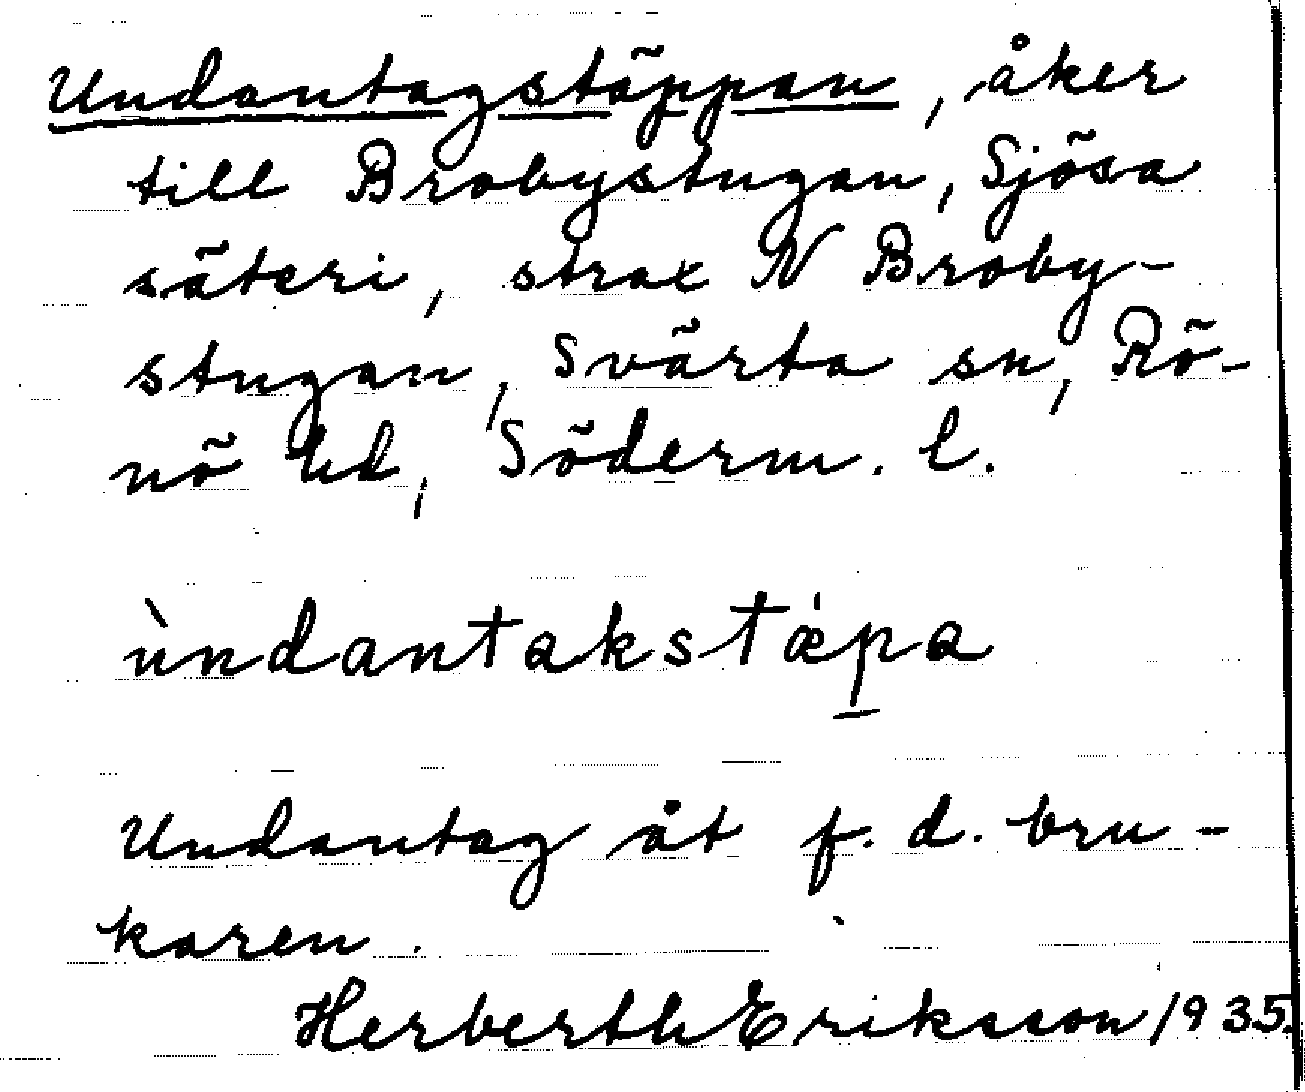 Undantagstäppan, åker
till Brobystugan, Sjösa
säteri, strax N Broby-
stugan, Svärta sn, Rö-
nö hd, Söderm. l.
ùndantakstæ̍p̠a
Undantag åt f. d. bru-
karen.
Herberth Eriksson 1935.